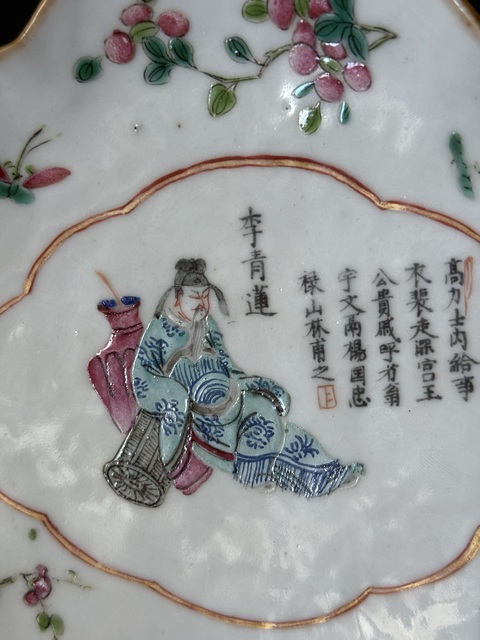 李青蓮
高力士內給事
衣裴走深宮王
公貴戚呼為翁
宇文兩楊國忠
祿山林甫之
上